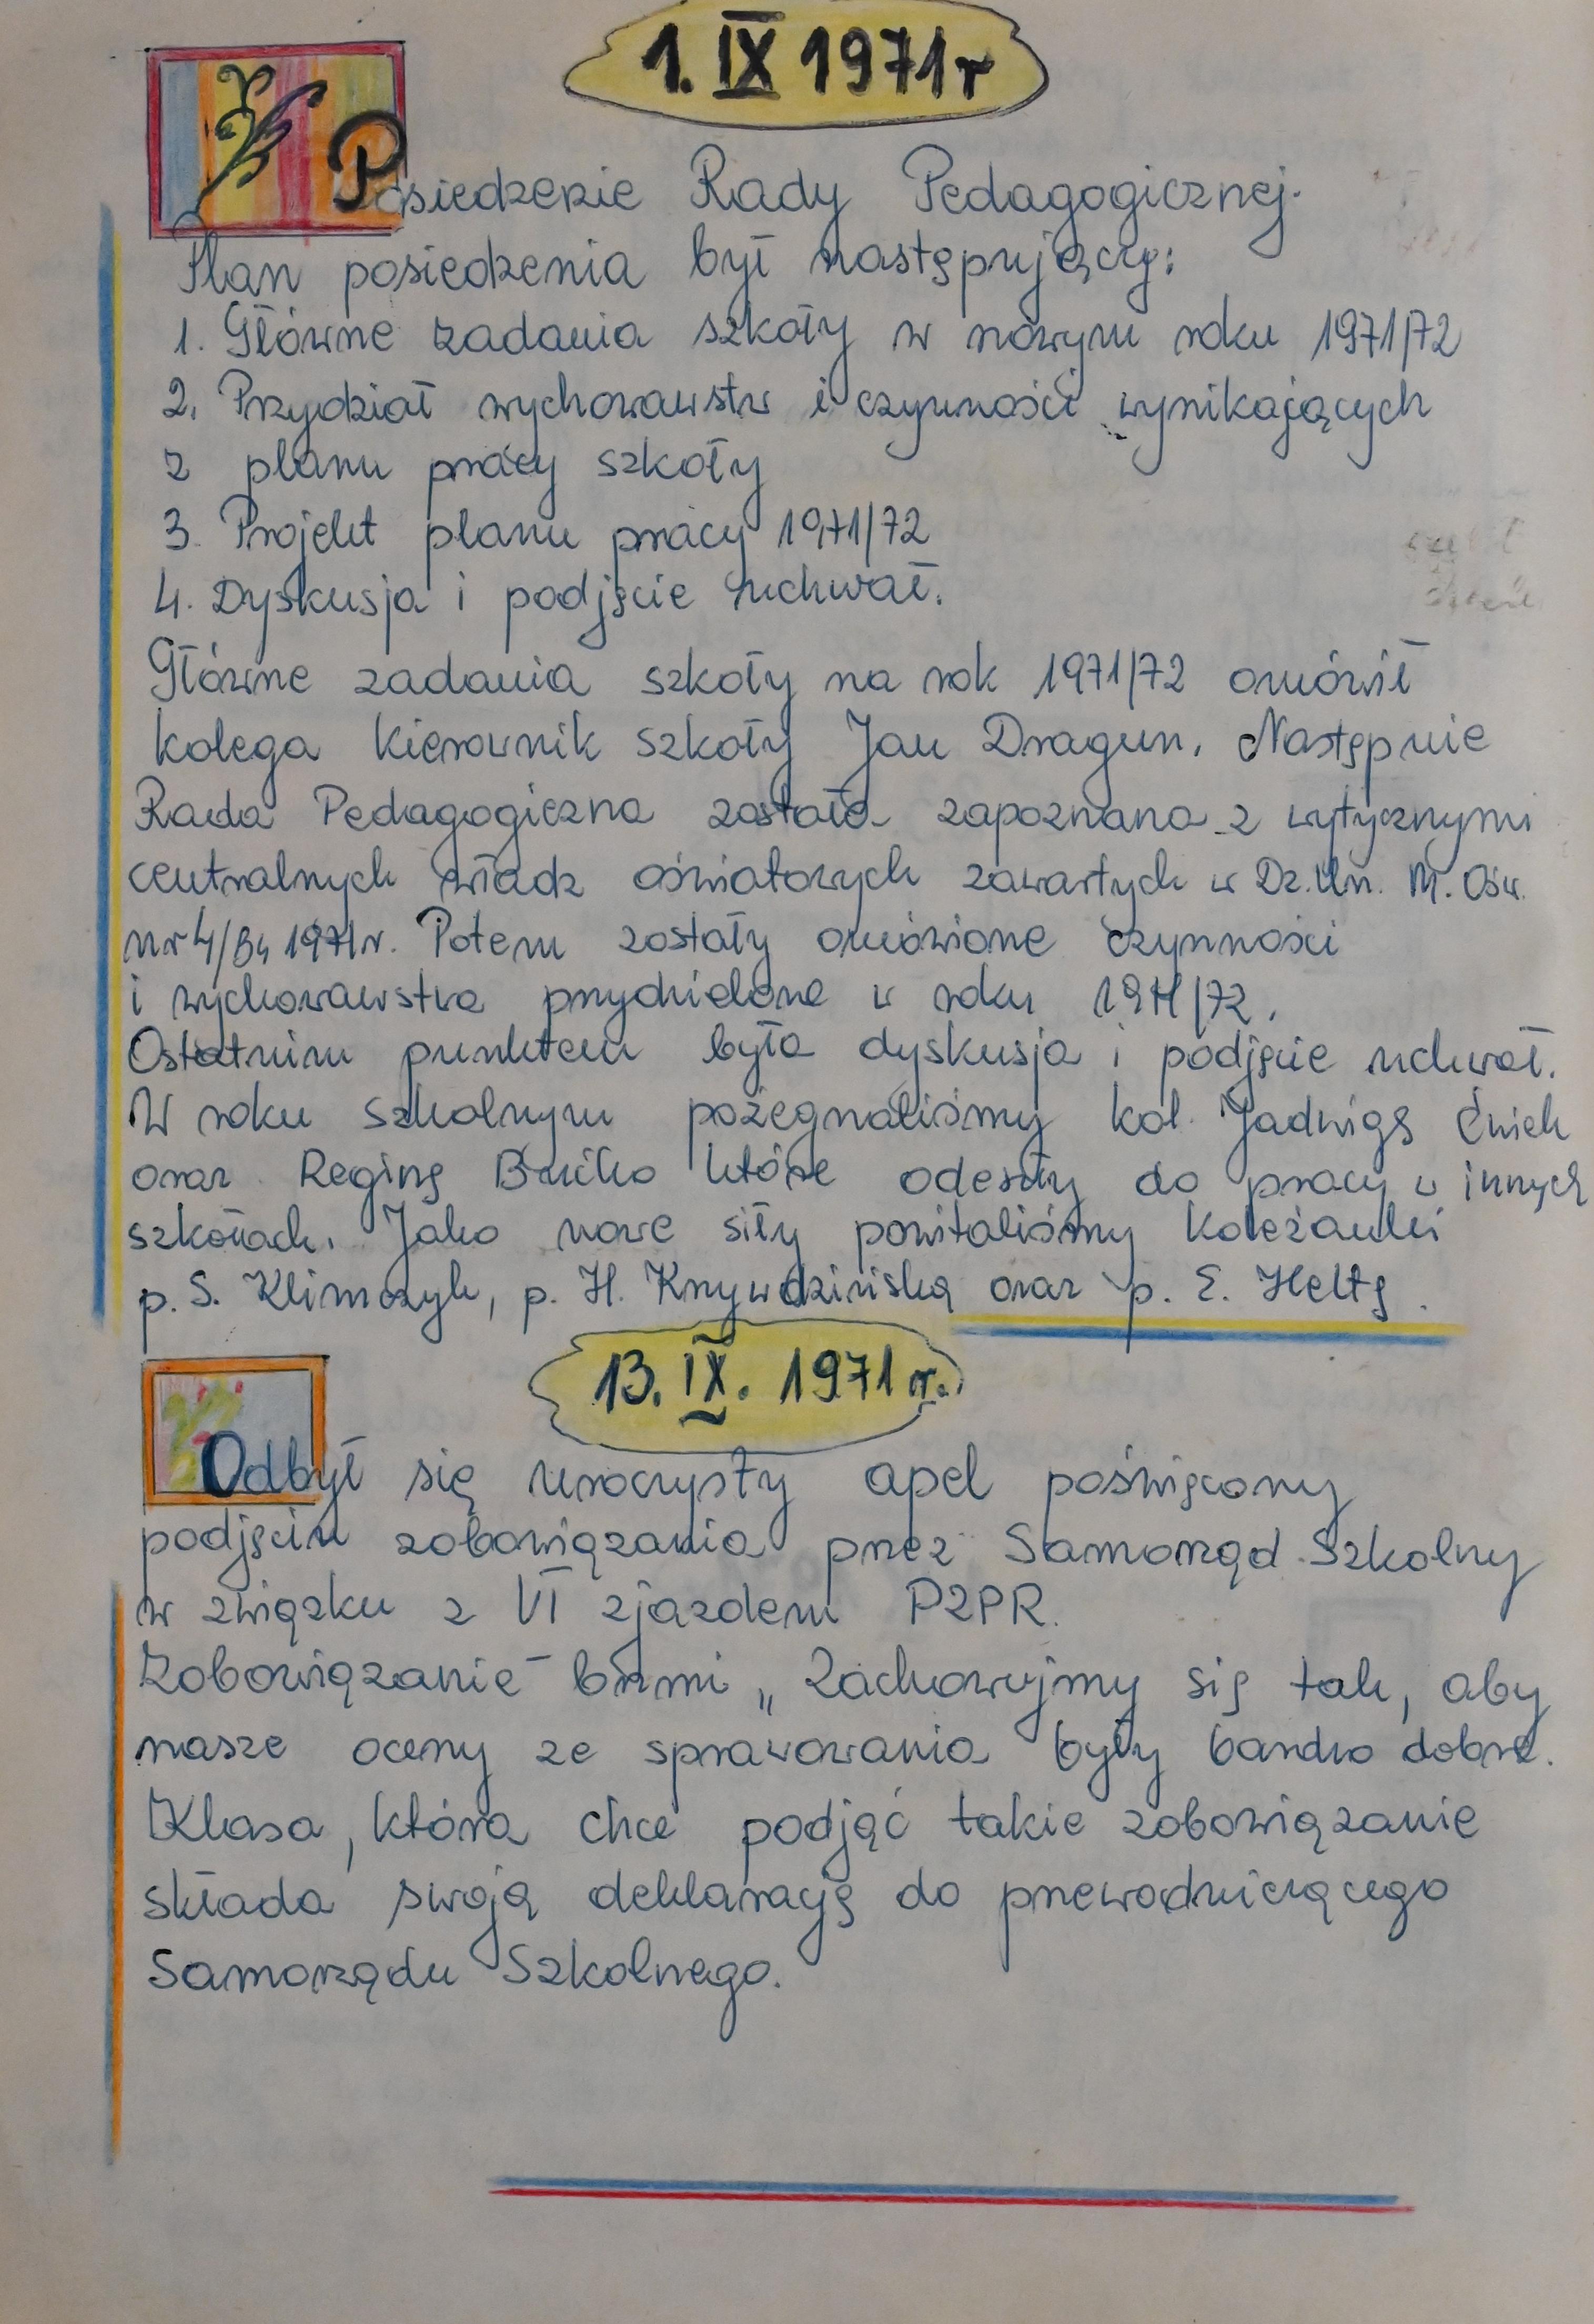 1. IX 1971r
Posiedzenie Rady Pedagogicznej.
Plan posiedzenia był następujący:
1. Główne zadania szkoły w nowym roku 1971/72
2. Przydział wychowawstw i czynności wynikających
z planu pracy szkoły
3. Projekt planu pracy 1971/72
4. Dyskusja i podjęcie uchwał.
Główne zadania szkoły na rok 1971/72 omówił
kolega kierownik szkoły Jan Dragun. Następnie
Rada Pedagogiczna została zapoznana z wytycznymi
centralnych władz oświatowych zawartych w Dz. Un. M. Ośw.
nr 4/B4 1971r. Potem zostały omówione czynności
i wychowawstwa przydzielone w roku 1971/72.
Ostatnim punktem była dyskusja i podjęcie uchwał.
W roku szkolnym pożegnaliśmy kol. Jadwigę Ćwiek
oraz Reginę które odeszły do pracy w innych
szkołach. Jako nowe siły powitaliśmy koleżanki
p. S. Klimczyk, p. H. Krzywdzińską oraz p. E. Heltę.
13. IX. 1971 r.
Odbył się uroczysty apel poświęcony
podjęciu zobowiązania przez Samorząd Szkolny
w związku z VI zjazdem PZPR.
Zobowiązanie brzmi „Zachowujmy się tak, aby
nasze oceny ze sprawowania były bardzo dobre.
Klasa, która chce podjąć takie zobowiązanie
składa swoją deklarację do przewodniczącego
Samorządu Szkolnego.